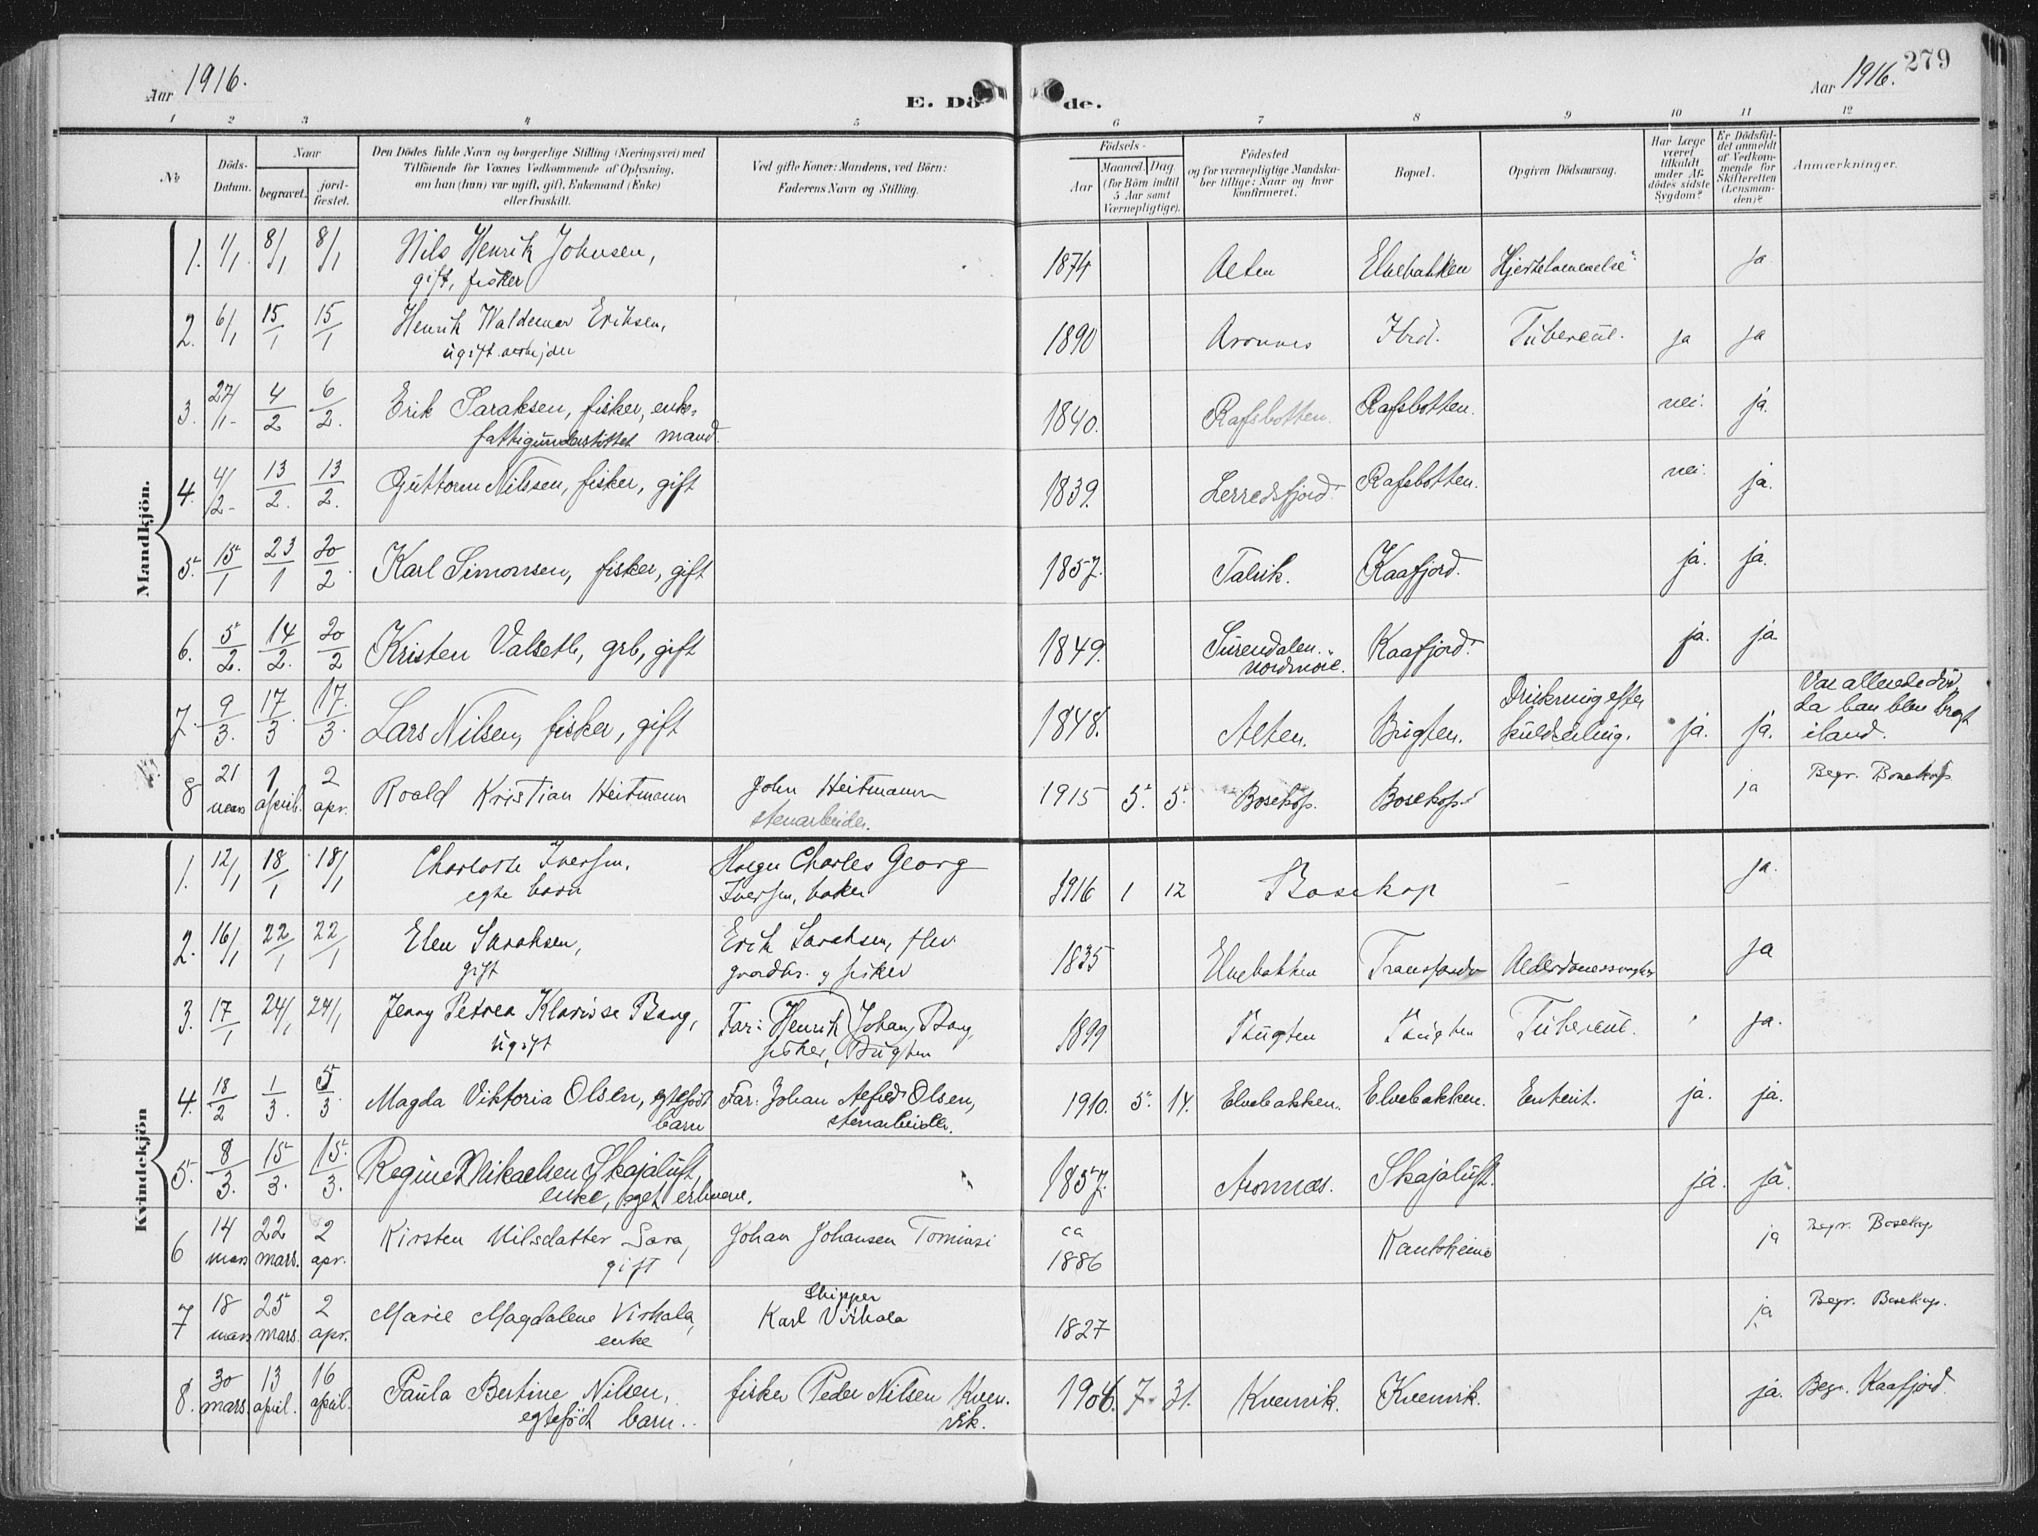 Aar 1916.
E. Dö de.
Aar 1916.
279
1 2 3 4 5 6 7 8 9 10 11 12
No
Döds-Datum.
Naar
begravet.
jord-fæstet.
Den Dödes fulde Navn og borgerlige Stilling (Næringsvei) med
Tilföiende for Voxnes Vedkommende af Oplysning,
om han (hun) var ugift, gift, Enkemand (Enke)
eller fraskilt.
Ved gifte Koner: Mandens, ved Börn:
Faderens Navn og Stilling.
Födsels-
Aar
Maaned. Dag
(for Börn indtil
5 Aar samt
Værnepligtige).
Födested
og for værnepligtige Mandska-
ber tillige: Naar og hvor
konfirmeret.
Bopæl.
Opgiven Dödsaarsag.
Har Læge
været
tilkaldt
under Af-
dödes sidste
Sygdom?
Er Dödsfal-
det anmeldt
af Vedkom-
mende for
Skifteretten
(Lensman-
den)?
Anmærkninger.
Mandkjön.
1. 1/1 8/1 8/1 Nils Henrik Johnsen, 1874 Alten Elvebakken Hjertelammelse ja
gift, fisker
2. 6/1 15/1 15/1 Henrik Waldemar Eriksen, 1890 Aronnes Ibid. Tubercul. ja ja
ugift arbejder
3. 27/1- 4/2 6/2. Erik Saraksen, fisker, enke- 1840. Rafsbotten. Rafsbotten. nei. ja.
fattigunderstöttet mand.
4. 4/2- 13/2. 13/2. Guttorm Nilsen, fisker, gift 1839. Lerredsfjord. Rafsbotten. nei. ja.
5. 15/1 23/1 20/2. Karl Simonsen, fisker, gift 1857. Talvik. Kaafjord. ja. ja.
6. 5/2. 14/2. 20/2 Kristen Valseth, grb, gift 1849. Surendalen. Kaafjord. ja. ja
Nordmöre.
7. 9/3. 17/3. 17./3. Lars Nilsen, fisker, gift 1848. Alten. Bugten. Drukning efter kuldseiling. ja. ja. Var allerede död da han blev bragt iland.
8 21 mars 1 april. 2 apr. Roald Kristian Heitmann John Heitmann 1915 5. 5. Bosekop. Bosekop. ja Begr. Bosekop
stenarbeider.
Kvindekjön
1. 12/1 18/1 18/1 Charlotte Iversen, Holger Charles Georg 1916 1 12 Bosekop – ja.
egte barn Iversen, baker
2. 16/1 22/1 22/1 Elen Saraksen, Erik Saraksen, 1835 Elvebakken ja
gift gaardbr. og fisker
3. 17/1 24/1 24/1 Jenny Petrea Klarisse Bang, Far: Henrik Johan Bang, 1899 Bugten Bugten Tubercul. ja.
ugift fisker, Bugten
4. 18/2 1/3. 5/3. Magda Viktoria Olsen, egtefödt Far: Johan Alfred Olsen, 1910. 5. 14. Elvebakken. Elvebakken. ja. ja.
barn stenarbeider.
5. 8/3. 15/3. 15./3. Regine Mikaelsen Skajaluft, 1857. Aronnæs. Skajaluft. ja. ja.
enke, eget erhverv.
6 14 mars 22 mars. 2 apr. Kirsten Nilsdatter Sara, Johan Johansen Tominsi ca 1886 Kautokeino ja Begr. Bosekop
gift
7 18 mars 25 mars. 2 apr. Marie Magdalene Virkala, Skipper Karl Virkala 1827 ja Begr. Bosekop.
enke
8. 30 mars. 13 april. 16 april. Paula Bertine Nilsen, fisker Peder Nilsen Kven- 1906. 7. 31. Kvenvik. Kvenvik. ja. Begr. Kaafjord.
egtefödt barn. vik.